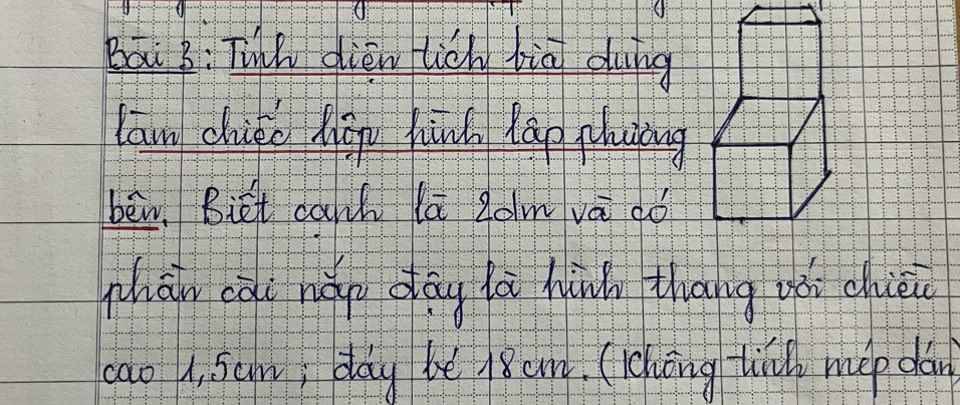 Bài 3: Tính diện tích bìa dùng
làm chiếc hộp hình lập phương
bên. Biết cạnh là 2dm và có
phần cài nắp đậy là hình thang với chiều
cao 1,5cm; đáy bé 18 cm. (Không tính mép dán)